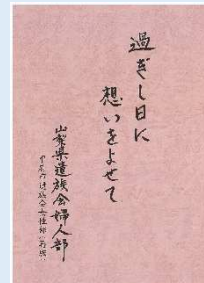 過ぎし日に
想いをよせて
山梨県遺族会婦人部